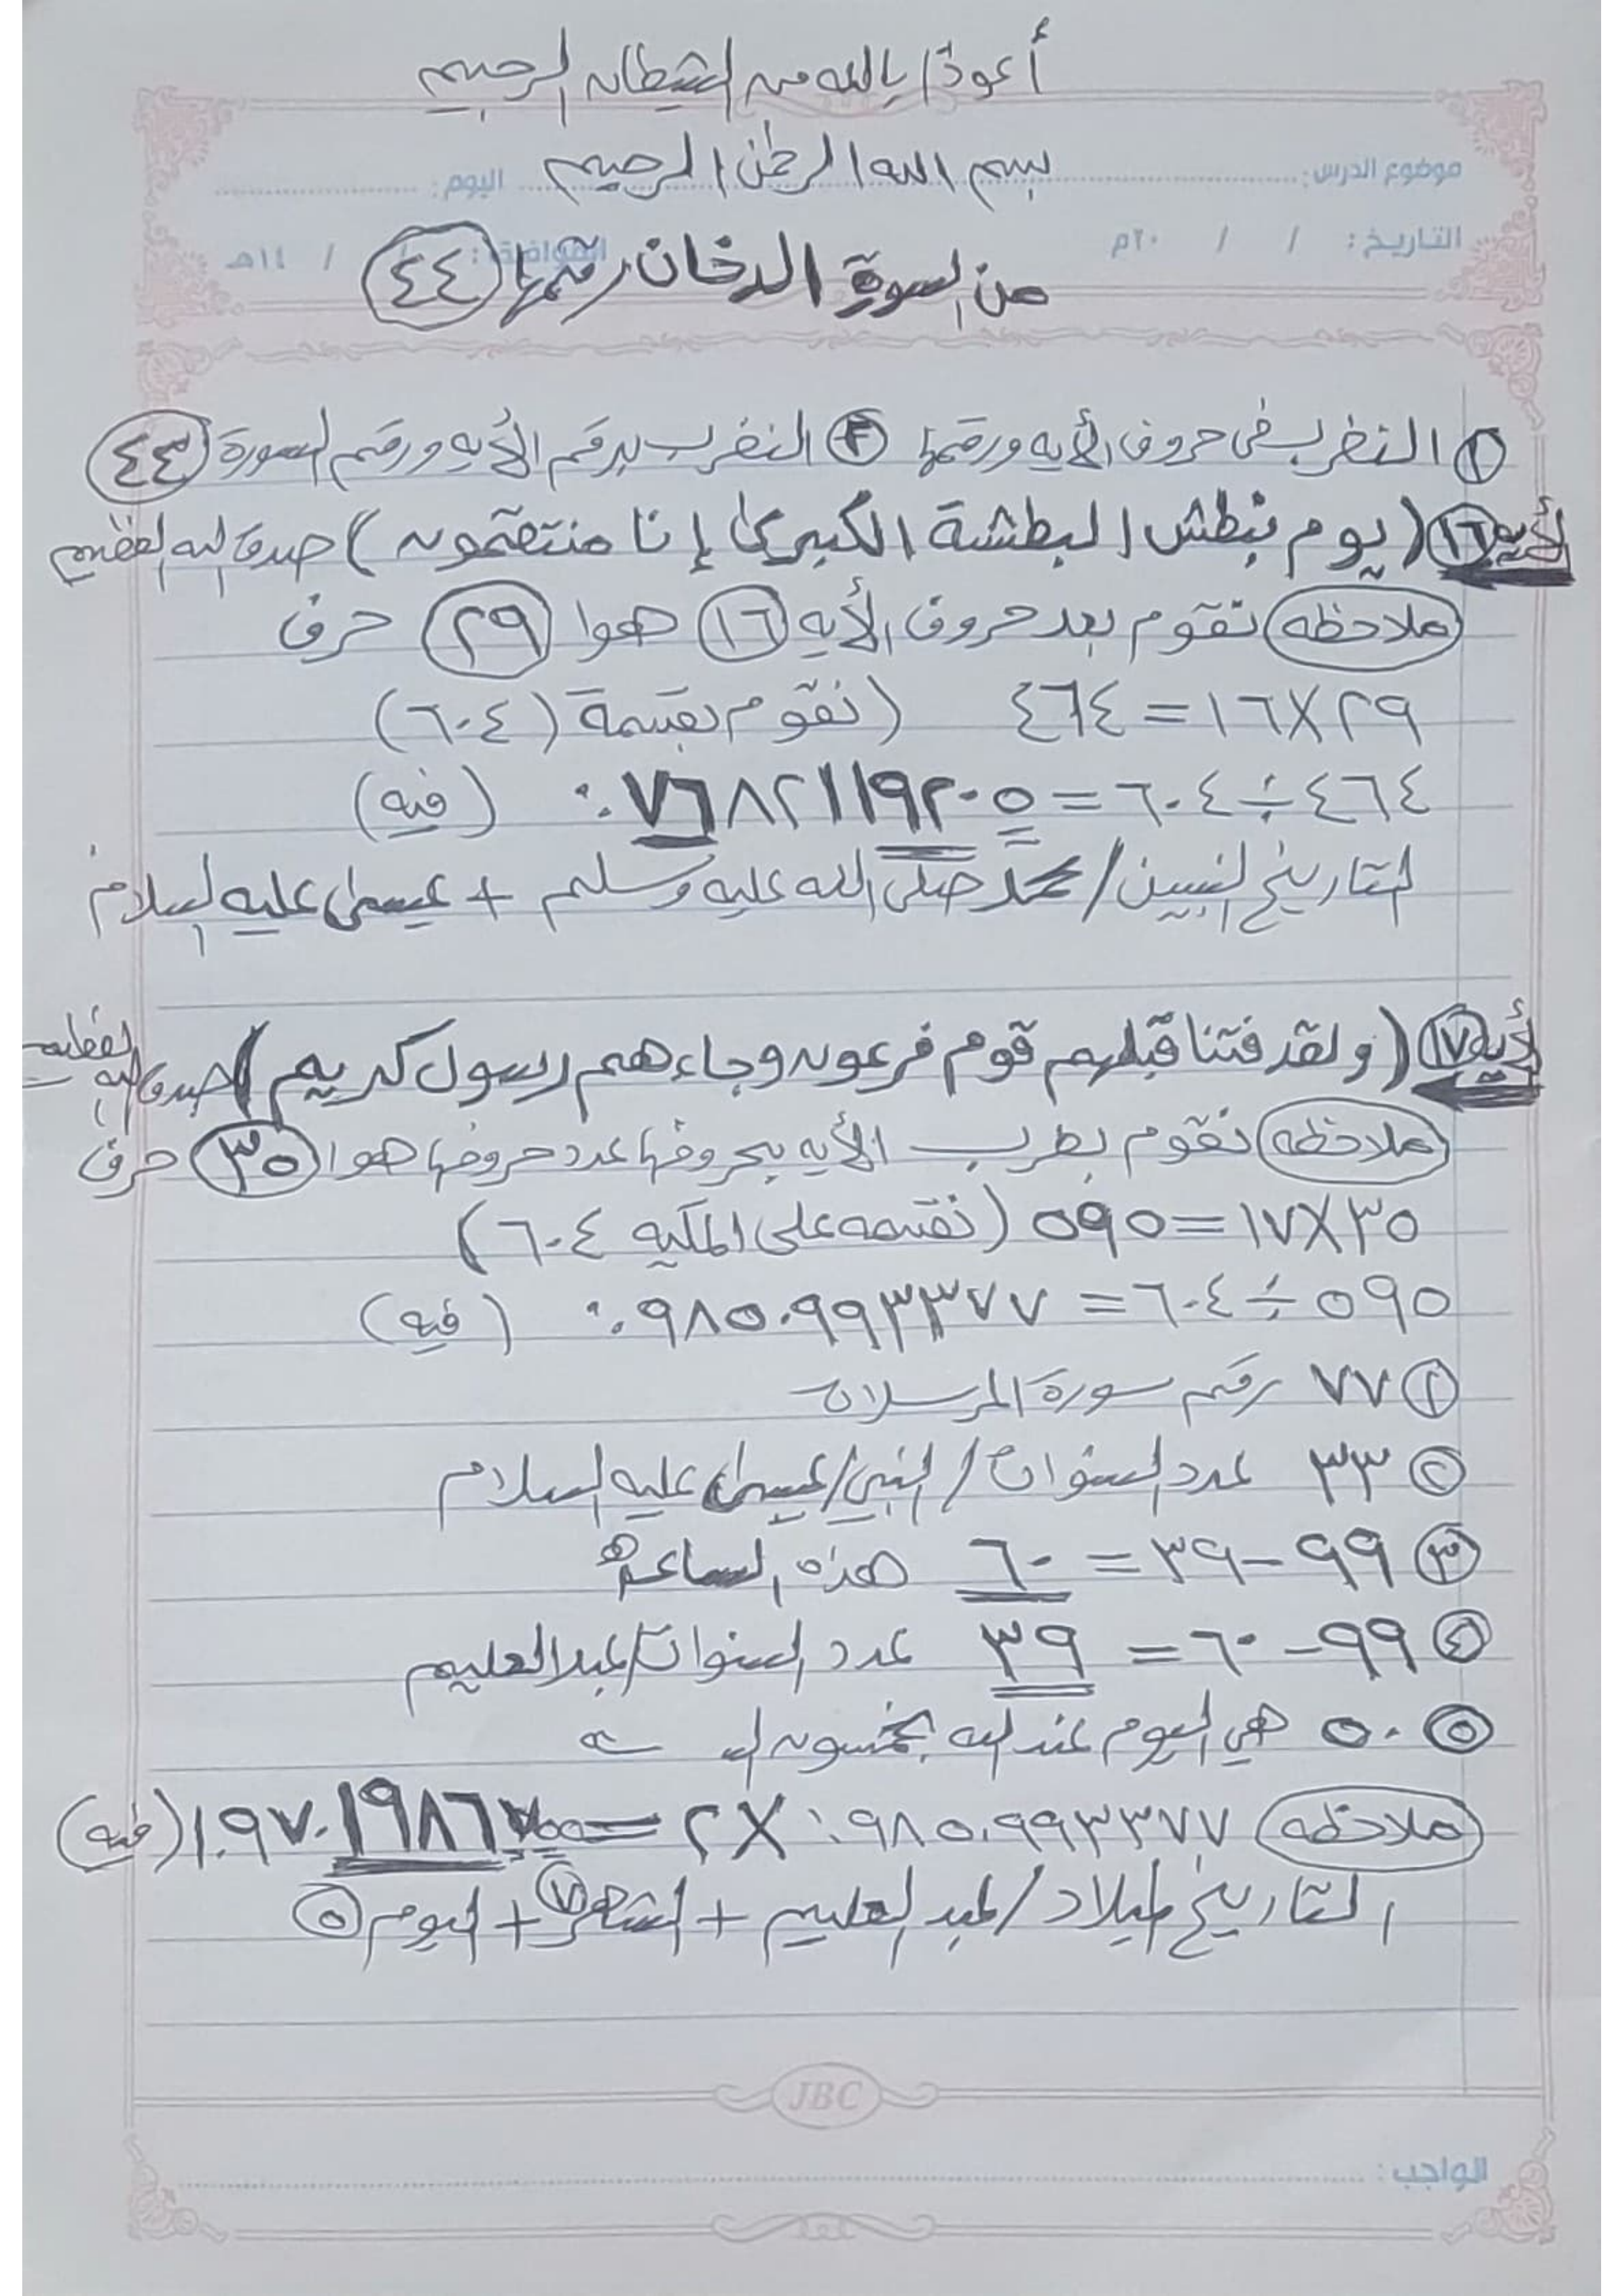 أعوذ بالله من الشيطان الرجيم
بسم الله الرحمن الرحيم
موضوع الدرس: اليوم:
التاريخ: / / ٢٠م الموافق: / / ١٤هـ
من السورة الدخان رقمها ٤٤
١ النضر في حروف الأيه ورقمها ٢ النضر برقم الأيه ورقم السورة ٤٤
لأيه ١٦ (يوم نبطش البطشة الكبرى إنا منتقمون) صدق الله العظيم
ملاحظه نقوم بعد حروف الأيه ١٦ هوا ٢٩ حرف
٢٩×١٦=٤٦٤ (نقوم بقسمة (٦٠٤)
٤٦٤÷٦٠٤=٠.٧٦٨٢١١٩٢٠٥ (فيه)
التاريخ النبيين/محمد صلى الله عليه وسلم + عيسى عليه السلام
لأيه ١٧ (ولقد فتنا قبلهم قوم فرعون وجاءهم رسول كريم) صدق الله العظيم
ملاحظه نقوم بطرب الأيه بحروفها عدد حروفها هوا ٣٥ حرف
٣٥×١٧=٥٩٥ (نقسمه على المكيه ٦٠٤)
٥٩٥÷٦٠٤=٠.٩٨٥٠٩٩٣٣٧٧ (فيه)
١ ٧٧ رقم سورة المرسلات
٢ ٣٣ عدد السنوات/النبي/عيسى عليه السلام
٣ ٩٩-٣٩=٦٠ هذه الساعه
٤ ٩٩-٦٠=٣٩ عدد السنوات/عبدالعليم
٥ ٥٠ هي اليوم عند الله بخمسون
ملاحظه ٠.٩٨٥٠٩٩٣٣٧٧×٢=١.٩٧٠١٩٨٦٧ (فيه)
التاريخ ميلاد/عبد العليم + الشهر ٧ + اليوم ٥
JBC
الواجب: